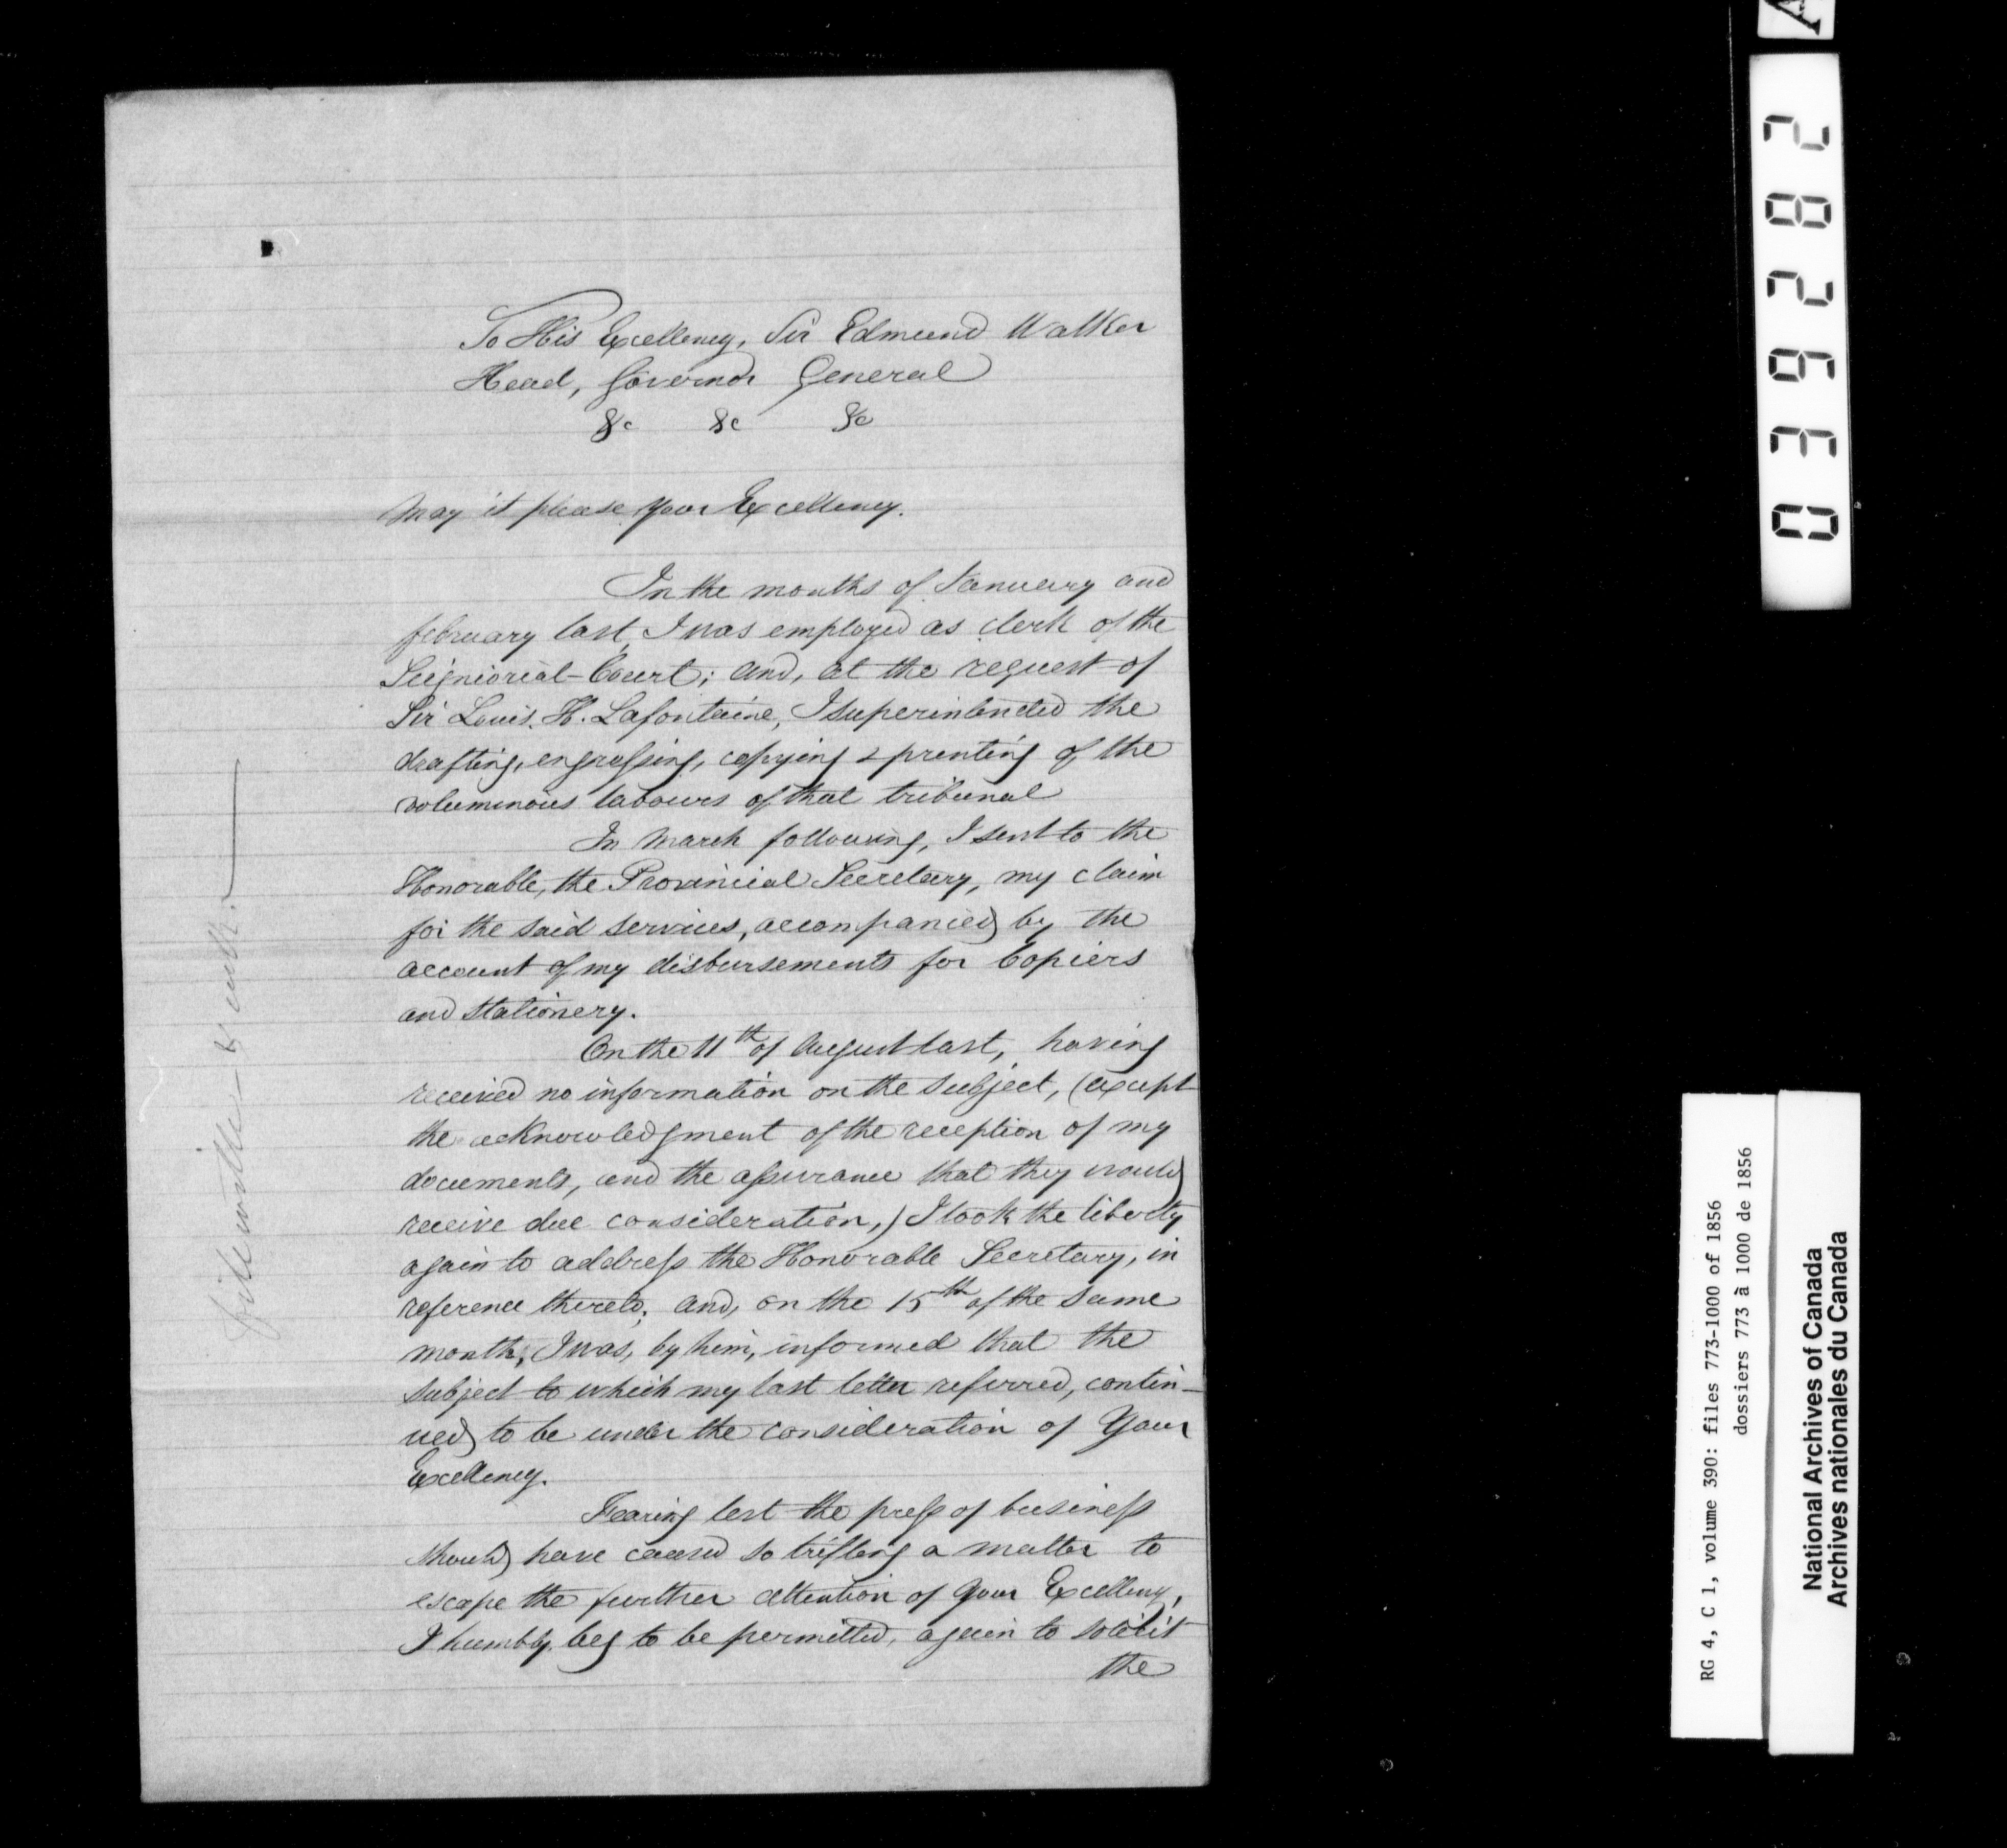 To His Excellency, Sir Edmund Walker
Head, Governor General
&c &c &c
May it please Your Excellency.
In the months of January and
february last, I was employed as clerk of the
Seigniorial-Court; and, at the request of
Sir Louis. H. Lafontaine, I superintended the
drafting, engrossing, copying & printing of the
voluminous labours of that tribunal
In March following, I sent to the
Honorable, the Provincial Secretary, my claim
for the said services, accompanied by the
account of my disbursements for Copiers
and stationery.
On the 11th of August last, having
received no information on the subject, (except
the acknowledgment of the reception of my
documents, and the assurance that they would
receive due consideration,) I took the liberty
again to address the Honorable Secretary, in
reference thereto; and, on the 15th of the same
month, I was, by him, informed that the
subject to which my last letter referred, contin-
ued to be under the consideration of Your
Excellency.
Fearing lest the press of business
should have caused so trifling a matter to
escape the further attention of Your Excellency,
I humbly beg to be permitted, again to solicit
the
A
036282
RG 4, C 1, volume 390: files 773-1000 of 1856
dossiers 773 à 1000 de 1856
National Archives of Canada
Archives nationales du Canada